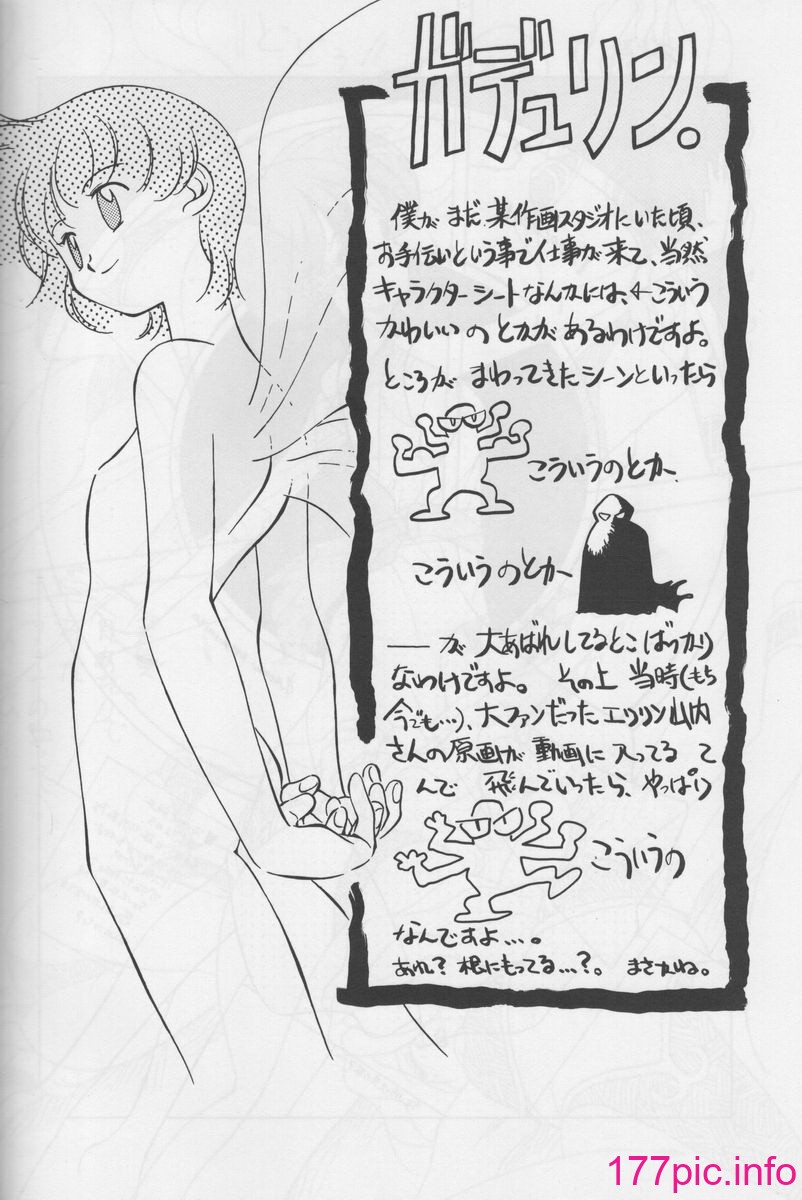 ガデュリン。
僕がまだ某作画スタジオにいた頃、
お手伝いという事で仕事が来て、当然
キャラクターシートなんかには、←こういう
かわいいのとかがあるわけですよ。
ところがまわってきたシーンといったら
こういうのとか、
こういうのとか
――が大あばれしてるとこばっかり
なわけですよ。その上当時(もち
今でも…)、大ファンだったエツリン山内
さんの原画が動画に入ってるて
んで飛んでいったら、やっぱり
こういうの
なんですよ…。
あれ?根にもってる…?。まさかね。
177pic.info